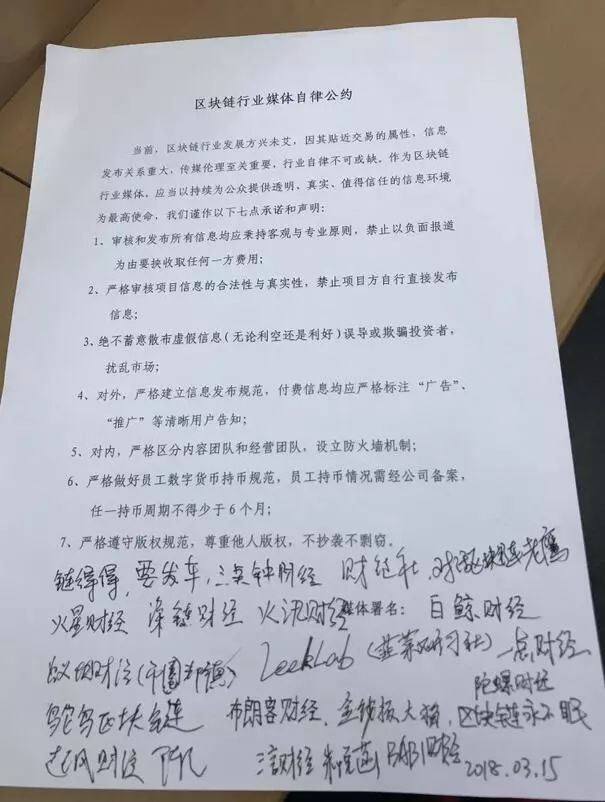 区块链行业媒体自律公约
当前，区块链行业发展方兴未艾，因其贴近交易的属性，信息
发布关系重大，传媒伦理至关重要，行业自律不可或缺。作为区块链
行业媒体，应当以持续为公众提供透明、真实、值得信任的信息环境
为最高使命，我们谨作以下七点承诺和声明：
1、审核和发布所有信息均应秉持客观与专业原则，禁止以负面报道
为由要挟收取任何一方费用；
2、严格审核项目信息的合法性与真实性，禁止项目方自行直接发布
信息；
3、绝不蓄意散布虚假信息（无论利空还是利好）误导或欺骗投资者，
扰乱市场；
4、对外，严格建立信息发布规范，付费信息均应严格标注“广告”、
“推广”等清晰用户告知；
5、对内，严格区分内容团队和经营团队，设立防火墙机制；
6、严格做好员工数字货币持币规范，员工持币情况需经公司备案，
任一持币周期不得少于 6 个月；
7、严格遵守版权规范，尊重他人版权，不抄袭不剽窃。
链得得，要发车，三点钟财经 财经社
火星财经 深链财经 火讯财经 媒体署名： 白鲸财经
LeekLab（韭菜研习社）一点财经
陀螺财经
布朗客财经，金钱报大猫，区块链永不眠
BABI财经 2018.03.15